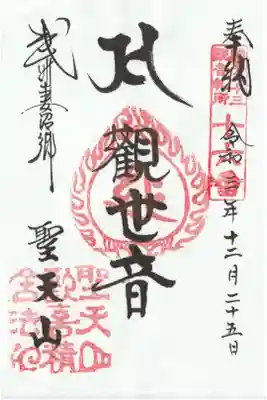 奉納 令和三年十二月二十五日
𑖭
觀世音
武州妻沼郷
聖天山
聖天山